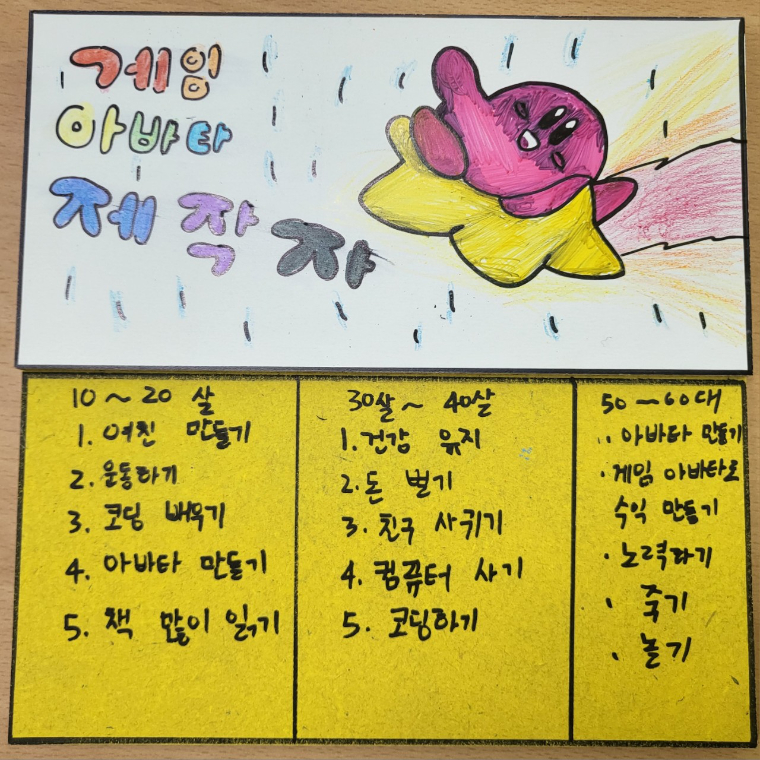 게임
아바타
제작자
10~20 살
1. 여친 만들기
2. 운동하기
3. 코딩 배우기
4. 아바타 만들기
5. 책 많이 읽기
30살~ 40살
1. 건강 유지
2. 돈 벌기
3. 친구 사귀기
4. 컴퓨터 사기
5. 코딩하기
50~60대
· 아바타 만들기
· 게임 아바타로
수익 만들기
· 노력하기
· 죽기
· 놀기